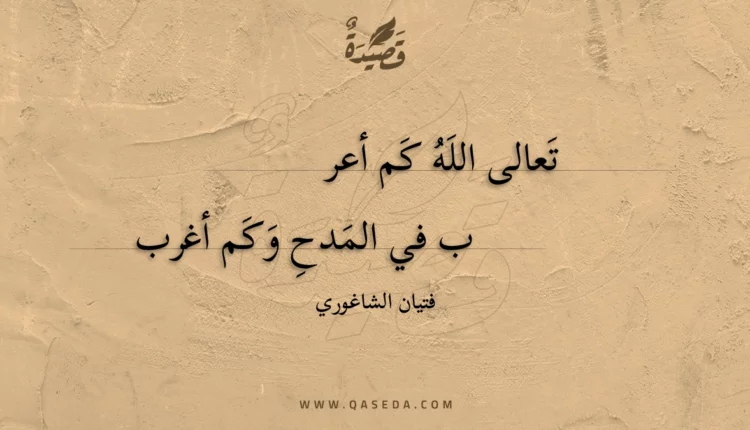 قَصِيْدَةٌ
تَعالى اللَهُ كَم أعر
ب في المَدحِ وَكَم أغرب
فتيان الشاغوري
WWW.QASEDA.COM